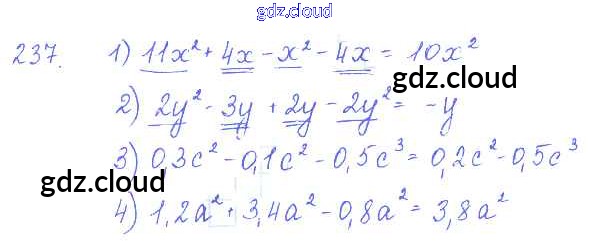 gdz.cloud
237. 1) 11x² + 4x - x² - 4x = 10x²
gdz.cloud
2) 2y² - 3y + 2y - 2y² = -y
3) 0,3c² - 0,1c² - 0,5c³ = 0,2c² - 0,5c³
gdz.cloud
4) 1,2a² + 3,4a² - 0,8a² = 3,8a²